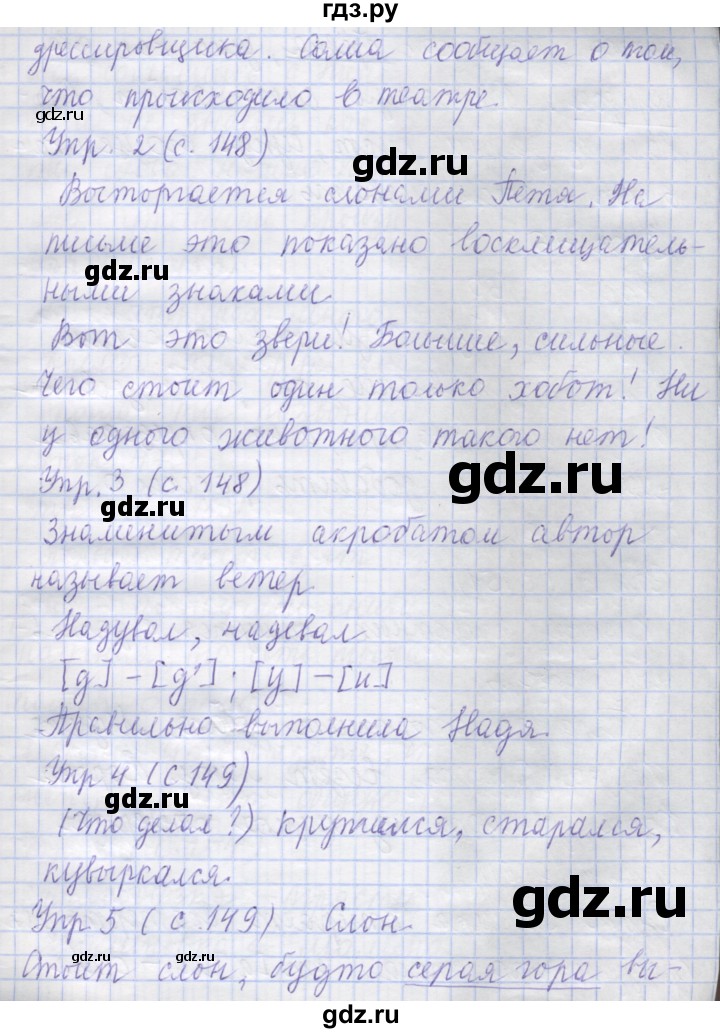 гдз.ру
дрессировщика. Соша сообщает о том,
что происходило в театре.
gdz.ru
Упр. 2 (с. 148)
gdz.ru
Восторгается слонами Петя. На
письме это показано восклицатель-
gdz.ru
ными знаками.
Вот это звери! Большие, сильные.
Чего стоит один только хобот! Ни
у одного животного такого нет!
Упр. 3 (с. 148)
gdz.ru
gdz.ru
Знаменитым акробатом автор
называет ветер.
Надувал, надевал
[д] – [д']; [у] – [и]
Правильно выполнила Надя.
Упр 4 (с 149)
gdz.ru
(Что делал?) Кружился, старался,
кувыркался.
gdz.ru
Упр 5 (с. 149) Слон.
gdz.ru
Стоит слон, будто серая гора вы-
gdz.ru
gdz.ru